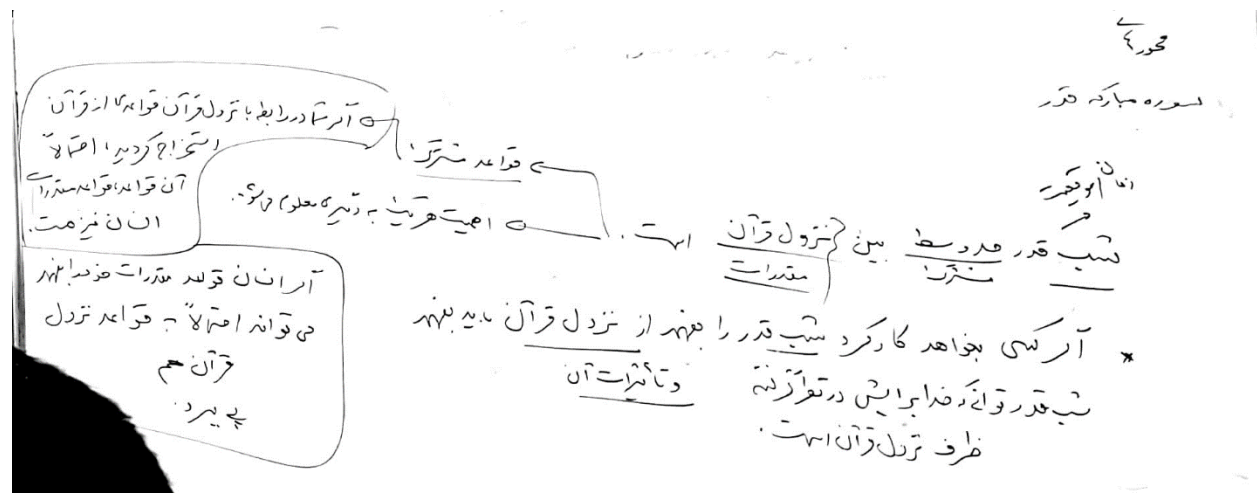 محور ۴
سوره مبارکه قدر
زمان / موقعیت
شب قدر حد وسط بین نزول قرآن است.
مشترک
مقدرات
قواعد مشترک:
اهمیت هر یک به دیگری معلوم می‌شود.
اگر شما در رابطه با نزول قرآن قواعدی از قرآن
استخراج کردید، احتمالاً
آن قواعد، قواعد مقدرات
انسان نیز هست.
اگر انسان قواعد مقدرات خود را بفهمد
می‌تواند احتمالاً به قواعد نزول
قرآن هم
پی ببرد.
* اگر کسی بخواهد کارکرد شب قدر را بفهمد از نزول قرآن باید بفهمد
و تأثیرات آن
شب قدر خدا برایش در نظر گرفته
ظرف نزول قرآن است.